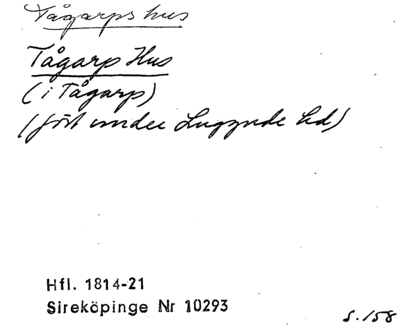 Tågarps hus
Tågarp Hus
(i Tågarp)
(fört under Luggude hd)
Hfl. 1814-21
Sireköpinge Nr 10293
s. 158